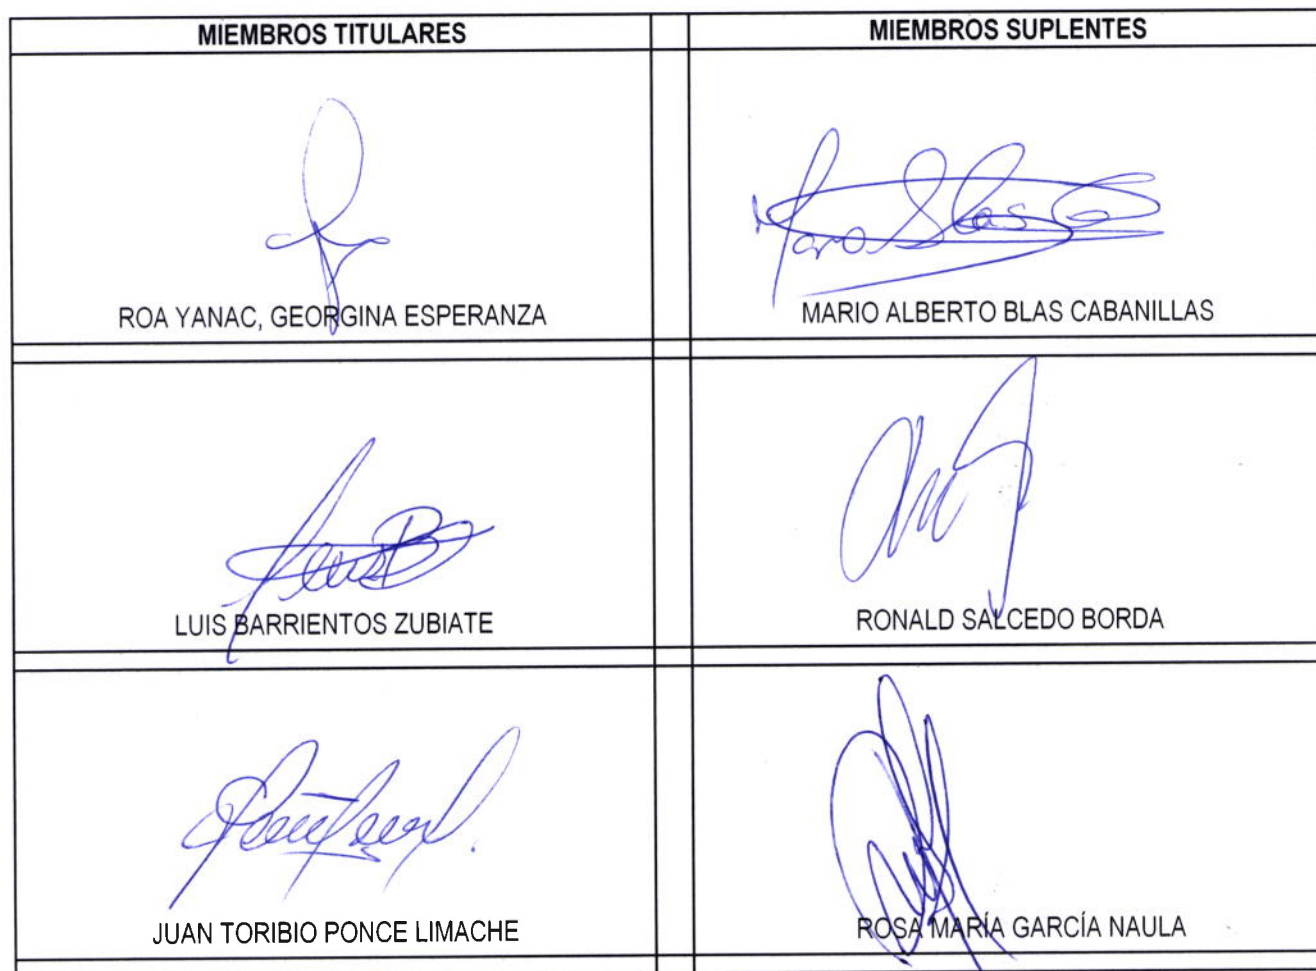 MIEMBROS TITULARES
MIEMBROS SUPLENTES
ROA YANAC, GEORGINA ESPERANZA
MARIO ALBERTO BLAS CABANILLAS
LUIS BARRIENTOS ZUBIATE
RONALD SALCEDO BORDA
JUAN TORIBIO PONCE LIMACHE
ROSA MARÍA GARCÍA NAULA